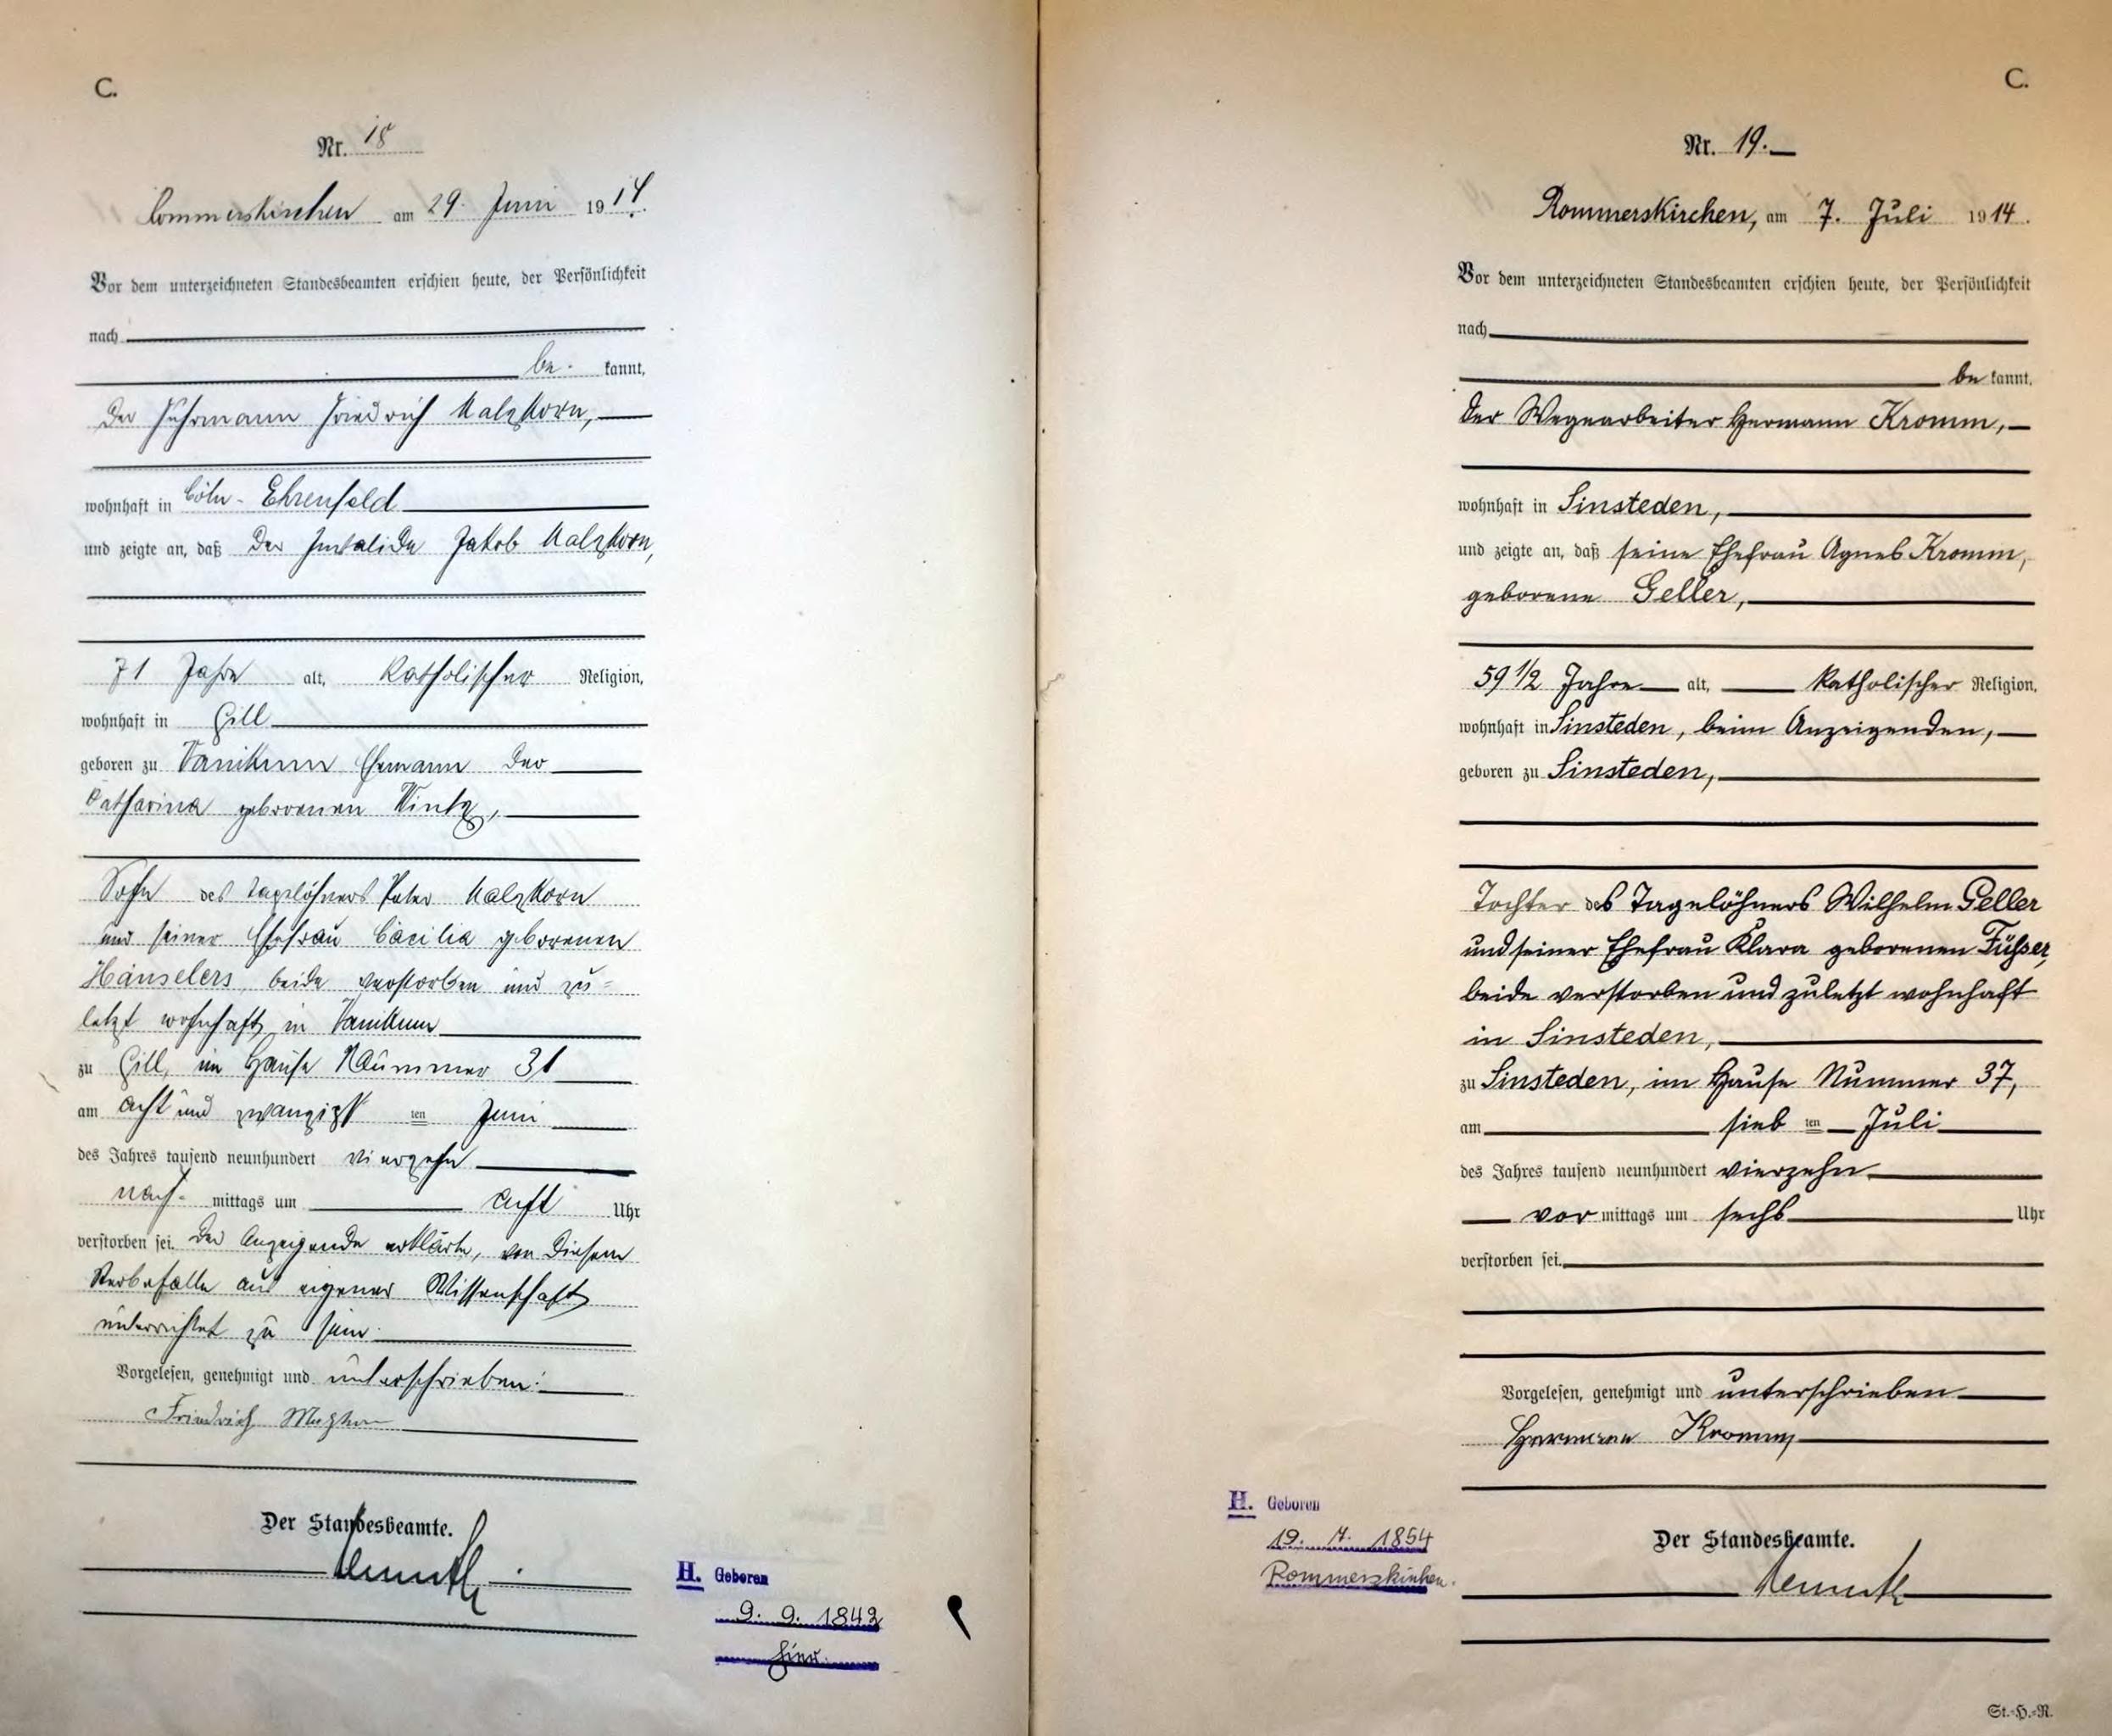 C.
Nr. 18
Rommerskirchen am 29. Juni 1914.
Vor dem unterzeichneten Standesbeamten erschien heute, der Persönlichkeit
nach
be- kannt,
der Fuhrmann Friedrich Malzkorn,
wohnhaft in Cöln-Ehrenfeld
und zeigte an, daß der Invalide Jakob Malzkorn,
71 Jahre alt, katholischer Religion,
wohnhaft in Gill
geboren zu Vanikum Ehemann der
Katharina geborenen Wintz,
Sohn des Tagelöhners Peter Malzkorn
und seiner Ehefrau Cäcilia geborenen
Häuselers, beide verstorben und zu=
letzt wohnhaft in Vanikum
zu Gill, im Hause Nummer 31
am acht und zwanzigst ten Juni
des Jahres tausend neunhundert vierzehn
nach- mittags um acht Uhr
verstorben sei. Der Anzeigende erklärte, von diesem
Sterbefalle aus eigener Wissenschaft
unterrichtet zu sein.
Vorgelesen, genehmigt und unterschrieben:
Friedrich
Der Standesbeamte.
H. Geboren
9. 9. 1842
hier.
C.
Nr. 19.
Rommerskirchen, am 7. Juli 1914.
Vor dem unterzeichneten Standesbeamten erschien heute, der Persönlichkeit
nach
be kannt,
der Wegearbeiter Hermann Kromm,
wohnhaft in Sinsteden,
und zeigte an, daß seine Ehefrau Agnes Kromm,
geborene Geller,
59 1/2 Jahre alt, katholischer Religion,
wohnhaft in Sinsteden, beim Anzeigenden,
geboren zu Sinsteden,
Tochter des Tagelöhners Wilhelm Geller
und seiner Ehefrau Klara geborenen Füsser,
beide verstorben und zuletzt wohnhaft
in Sinsteden,
zu Sinsteden, im Hause Nummer 37,
am sieb ten Juli
des Jahres tausend neunhundert vierzehn
vor mittags um sechs Uhr
verstorben sei.
Vorgelesen, genehmigt und unterschrieben
Hermann Kromm
Der Standesbeamte.
H. Geboren
19. 7. 1854
Rommerskirchen.
St.-H.-R.